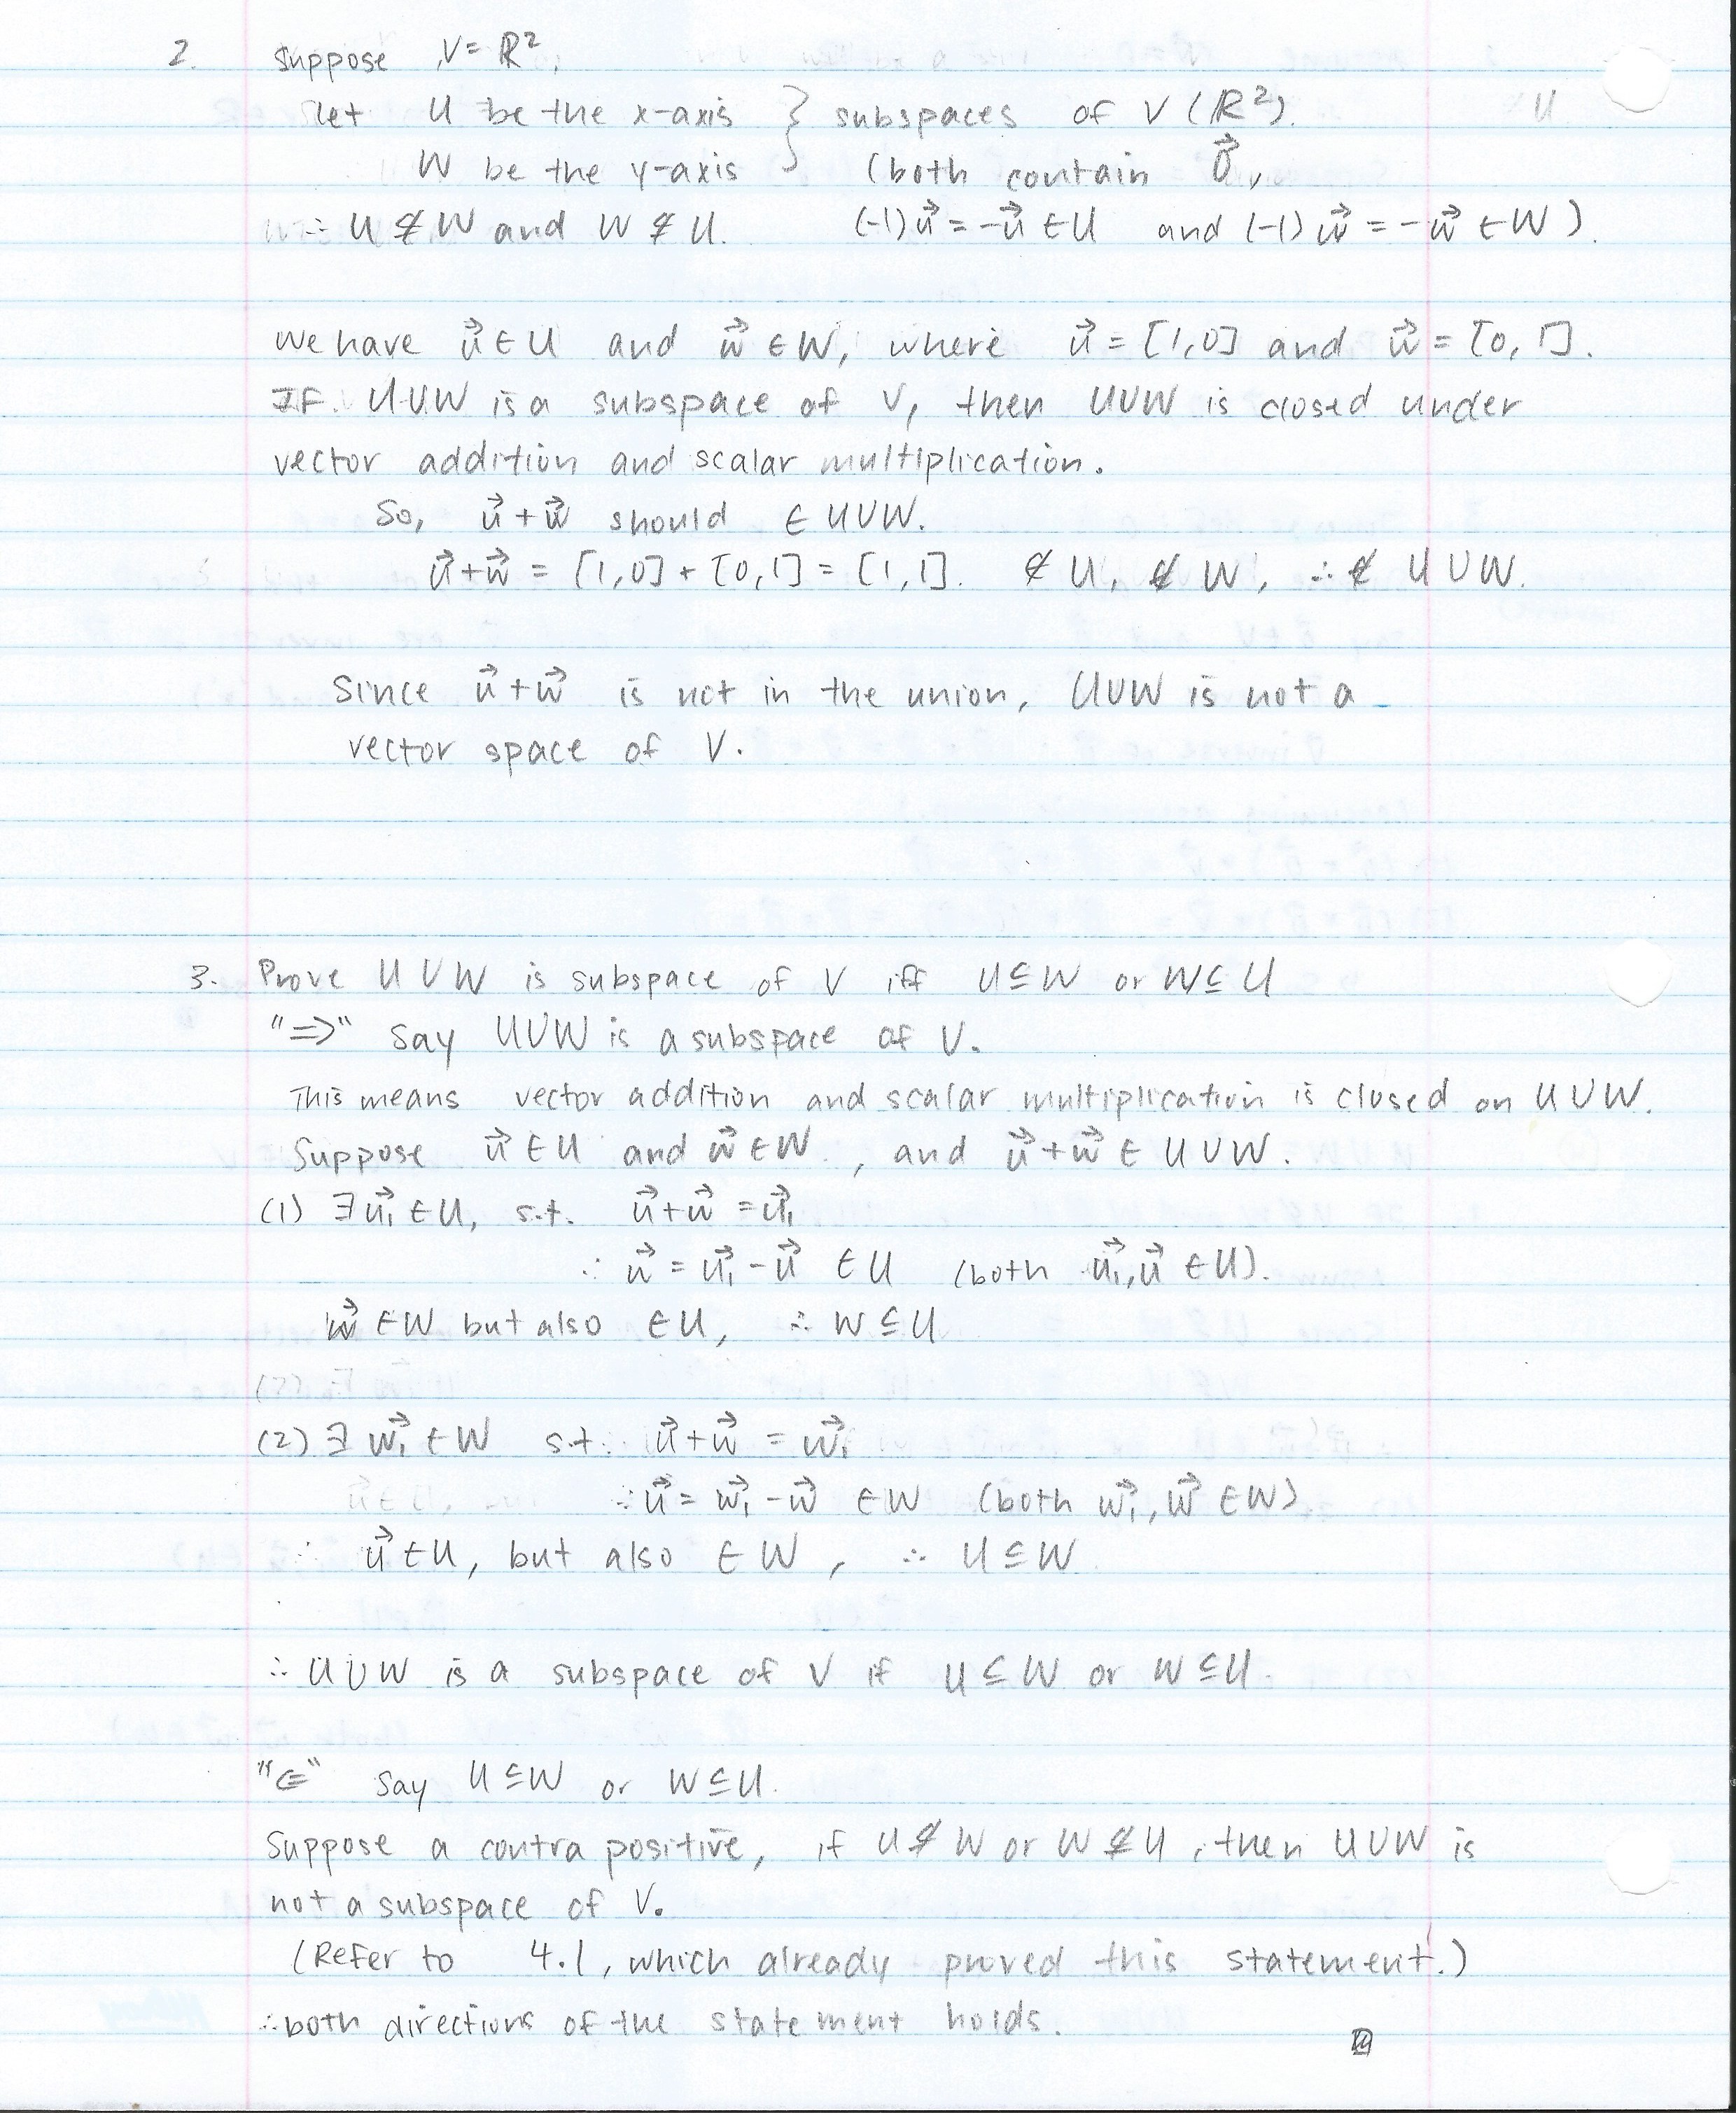 2. Suppose V = ℝ²,
let U be the x-axis } subspaces of V (ℝ²).
W be the y-axis (both contain 0⃗,
∴ U ⊄ W and W ⊄ U. (-1)u⃗ = -u⃗ ∈ U and (-1)w⃗ = -w⃗ ∈ W).
We have u⃗ ∈ U and w⃗ ∈ W, where u⃗ = [1,0] and w⃗ = [0,1].
If U∪W is a subspace of V, then U∪W is closed under
vector addition and scalar multiplication.
So, u⃗+w⃗ should ∈ U∪W.
u⃗+w⃗ = [1,0] + [0,1] = [1,1]. ∉ U, ∉ W, ∴ ∉ U∪W.
Since u⃗+w⃗ is not in the union, U∪W is not a
vector space of V.
3. Prove U∪W is subspace of V iff U⊆W or W⊆U
"⇒" Say U∪W is a subspace of V.
This means vector addition and scalar multiplication is closed on U∪W.
Suppose u⃗ ∈ U and w⃗ ∈ W, and u⃗+w⃗ ∈ U∪W.
(1) ∃ u⃗₁ ∈ U, s.t. u⃗+w⃗ = u⃗₁
∴ w⃗ = u⃗₁ - u⃗ ∈ U (both u⃗₁, u⃗ ∈ U).
w⃗ ∈ W but also ∈ U, ∴ W⊆U
(2) ∃ w⃗₁ ∈ W s.t. u⃗+w⃗ = w⃗₁
∴ u⃗ = w⃗₁ - w⃗ ∈ W (both w⃗₁, w⃗ ∈ W)
∴ u⃗ ∈ U, but also ∈ W, ∴ U⊆W
∴ U∪W is a subspace of V if U⊆W or W⊆U.
"⇐" Say U⊆W or W⊆U.
Suppose a contrapositive, if U⊄W or W⊄U, then U∪W is
not a subspace of V.
(Refer to 4.1, which already proved this statement.)
∴ both directions of the statement holds.